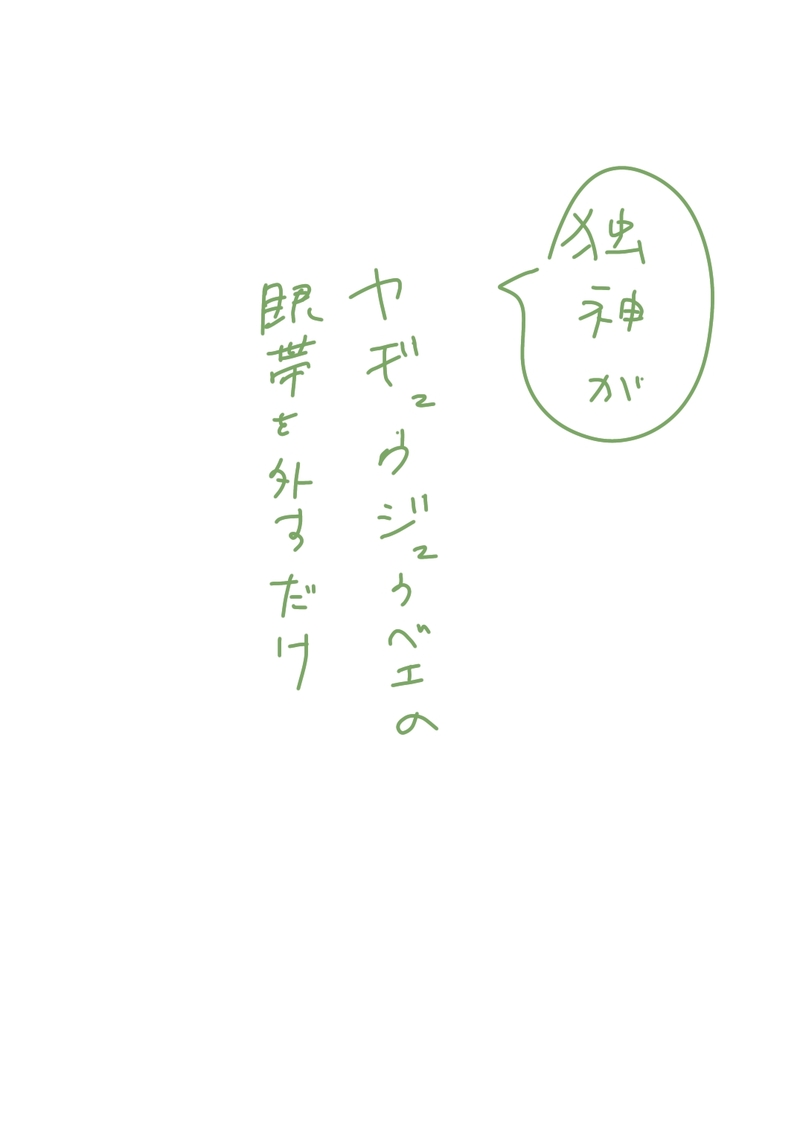 独神が
ヤギュウジュウベエの
眼帯を外すだけ